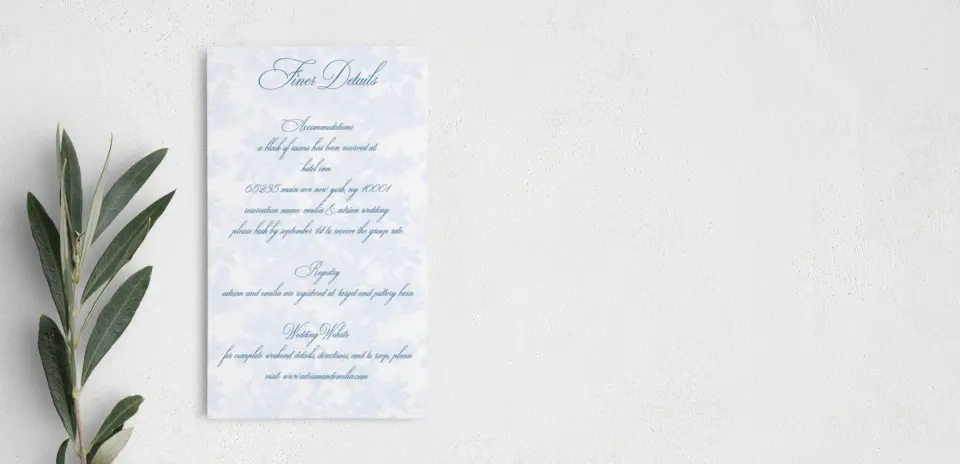 Finer Details
Accommodations
a block of rooms has been reserved at
hotel inn
65235 main ave new york, ny 10001
reservation name emilia & adrian wedding
please book by september 1st to receive the group rate.
Registry
adrian and emilia are registered at target and pottery barn
Wedding Website
for complete weekend details, directions, and to rsvp, please
visit www.adrianandemilia.com